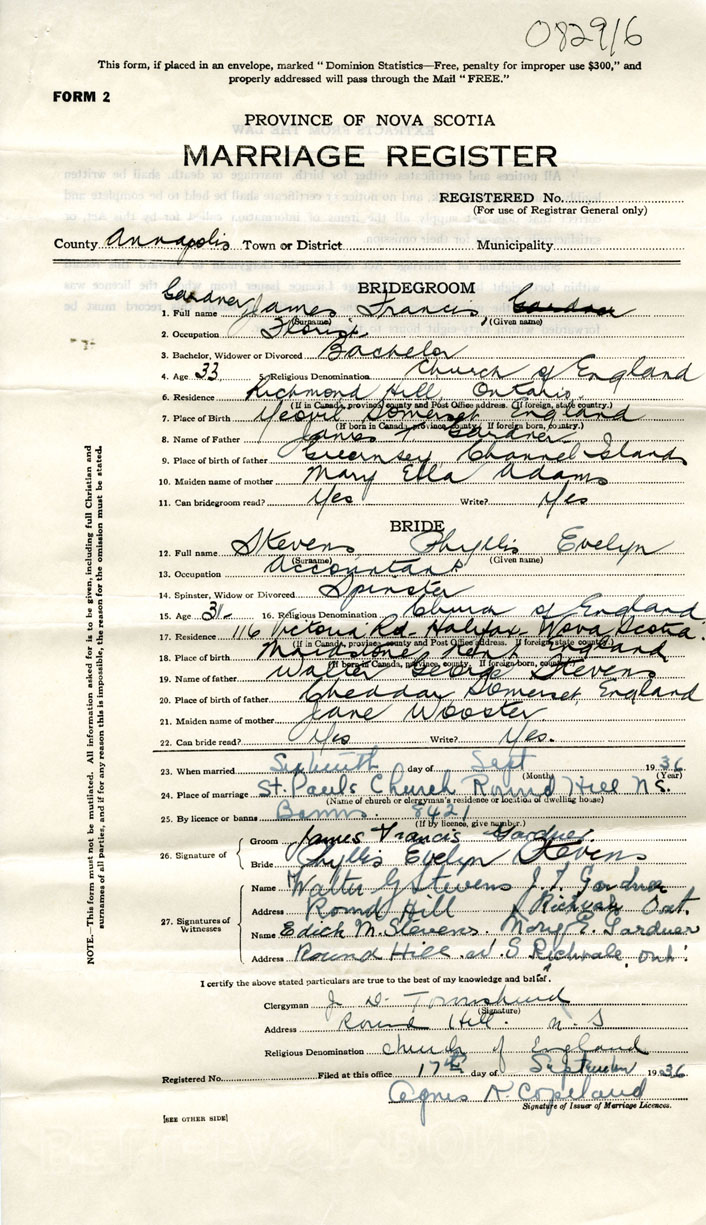 082916
This form, if placed in an envelope, marked "Dominion Statistics—Free, penalty for improper use $300," and
properly addressed will pass through the Mail "FREE."
FORM 2
PROVINCE OF NOVA SCOTIA
MARRIAGE REGISTER
REGISTERED No.
(For use of Registrar General only)
County Annapolis Town or District Municipality
BRIDEGROOM
1. Full name Gardner James Francis Gardner
(Surname) (Given name)
2. Occupation Florist
3. Bachelor, Widower or Divorced Bachelor
4. Age 33 5. Religious Denomination Church of England
6. Residence Richmond Hill, Ontario
(If in Canada, province, county and Post Office address. If foreign, state country.)
7. Place of Birth Yeovil Somerset England
(If born in Canada, province, county. If foreign born, country.)
8. Name of Father James F Gardner
9. Place of birth of father Guernsey Channel Islands
10. Maiden name of mother Mary Ella Adams
11. Can bridegroom read? Yes Write? Yes
BRIDE
12. Full name Stevens Phyllis Evelyn
(Surname) (Given name)
13. Occupation Accountant
14. Spinster, Widow or Divorced Spinster
15. Age 31 16. Religious Denomination Church of England
17. Residence 116 Victoria Rd. Halifax Nova Scotia.
(If in Canada, province, county and Post Office address. If foreign state country)
18. Place of birth Maidstone Kent England
(If born in Canada, province, county. If foreign born, country)
19. Name of father Walter George Stevens
20. Place of birth of father Cheddar Somerset, England
21. Maiden name of mother Jane Wooster
22. Can bride read? Yes Write? Yes.
23. When married day of Sept 1936
(Month) (Year)
24. Place of marriage St. Pauls Church Round Hill N S.
(Name of church or clergyman's residence or location of dwelling house)
25. By licence or banns Banns. 8421
(If by licence, give number.)
26. Signature of
Groom James Francis Gardner
Bride Phyllis Evelyn Stevens
27. Signatures of Witnesses
Name Walter G Stevens J. F. Gardner
Address Round Hill Ont.
Name Edith M. Stevens. Mary E. Gardner
Address Round Hill N. S Ont.
I certify the above stated particulars are true to the best of my knowledge and belief.
Clergyman J D. Townshend
(Signature)
Address Round Hill. N. S
Religious Denomination Church of England
Registered No. Filed at this office 17th day of September 1936
Agnes N. Copeland
Signature of Issuer of Marriage Licences.
[SEE OTHER SIDE]
NOTE.—This form must not be mutilated. All information asked for is to be given, including full Christian and
surnames of all parties, and if for any reason this is impossible, the reason for the omission must be stated.